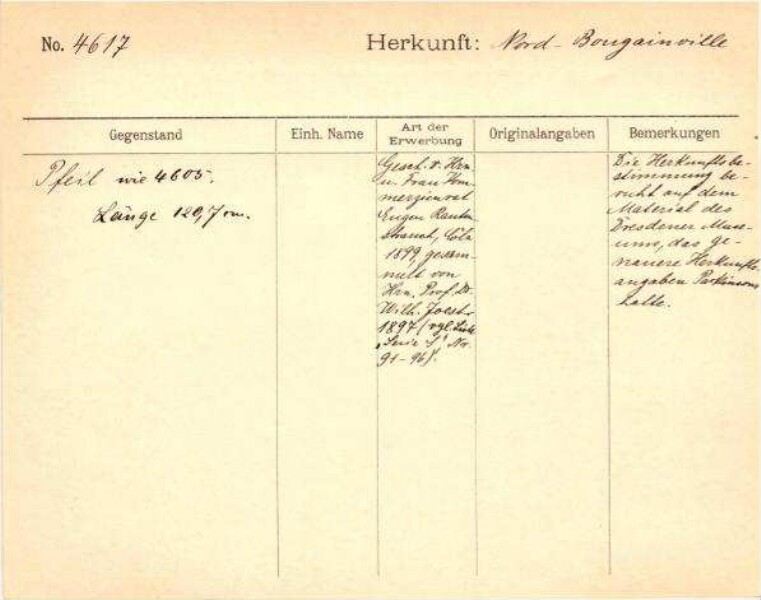 No. 4617
Herkunft: Nord-Bougainville
Gegenstand
Einh. Name
Art der Erwerbung
Originalangaben
Bemerkungen
Pfeil wie 4605.
Länge 120,7 cm.
Gesch. v. Hrn
u. Frau Kom-
merzienrat
Eugen Rauten-
strauch, Cöln
1899, gesam-
melt von
Hrn. Prof. Dr.
Wilh. Joest
1897 (vgl. Liste
„Serie S" No.
91-96).
Die Herkunftsbe-
stimmung be-
ruht auf dem
Material des
Dresdener Muse-
ums, das ge-
nauere Herkunfts-
angaben Parkinsons
hatte.